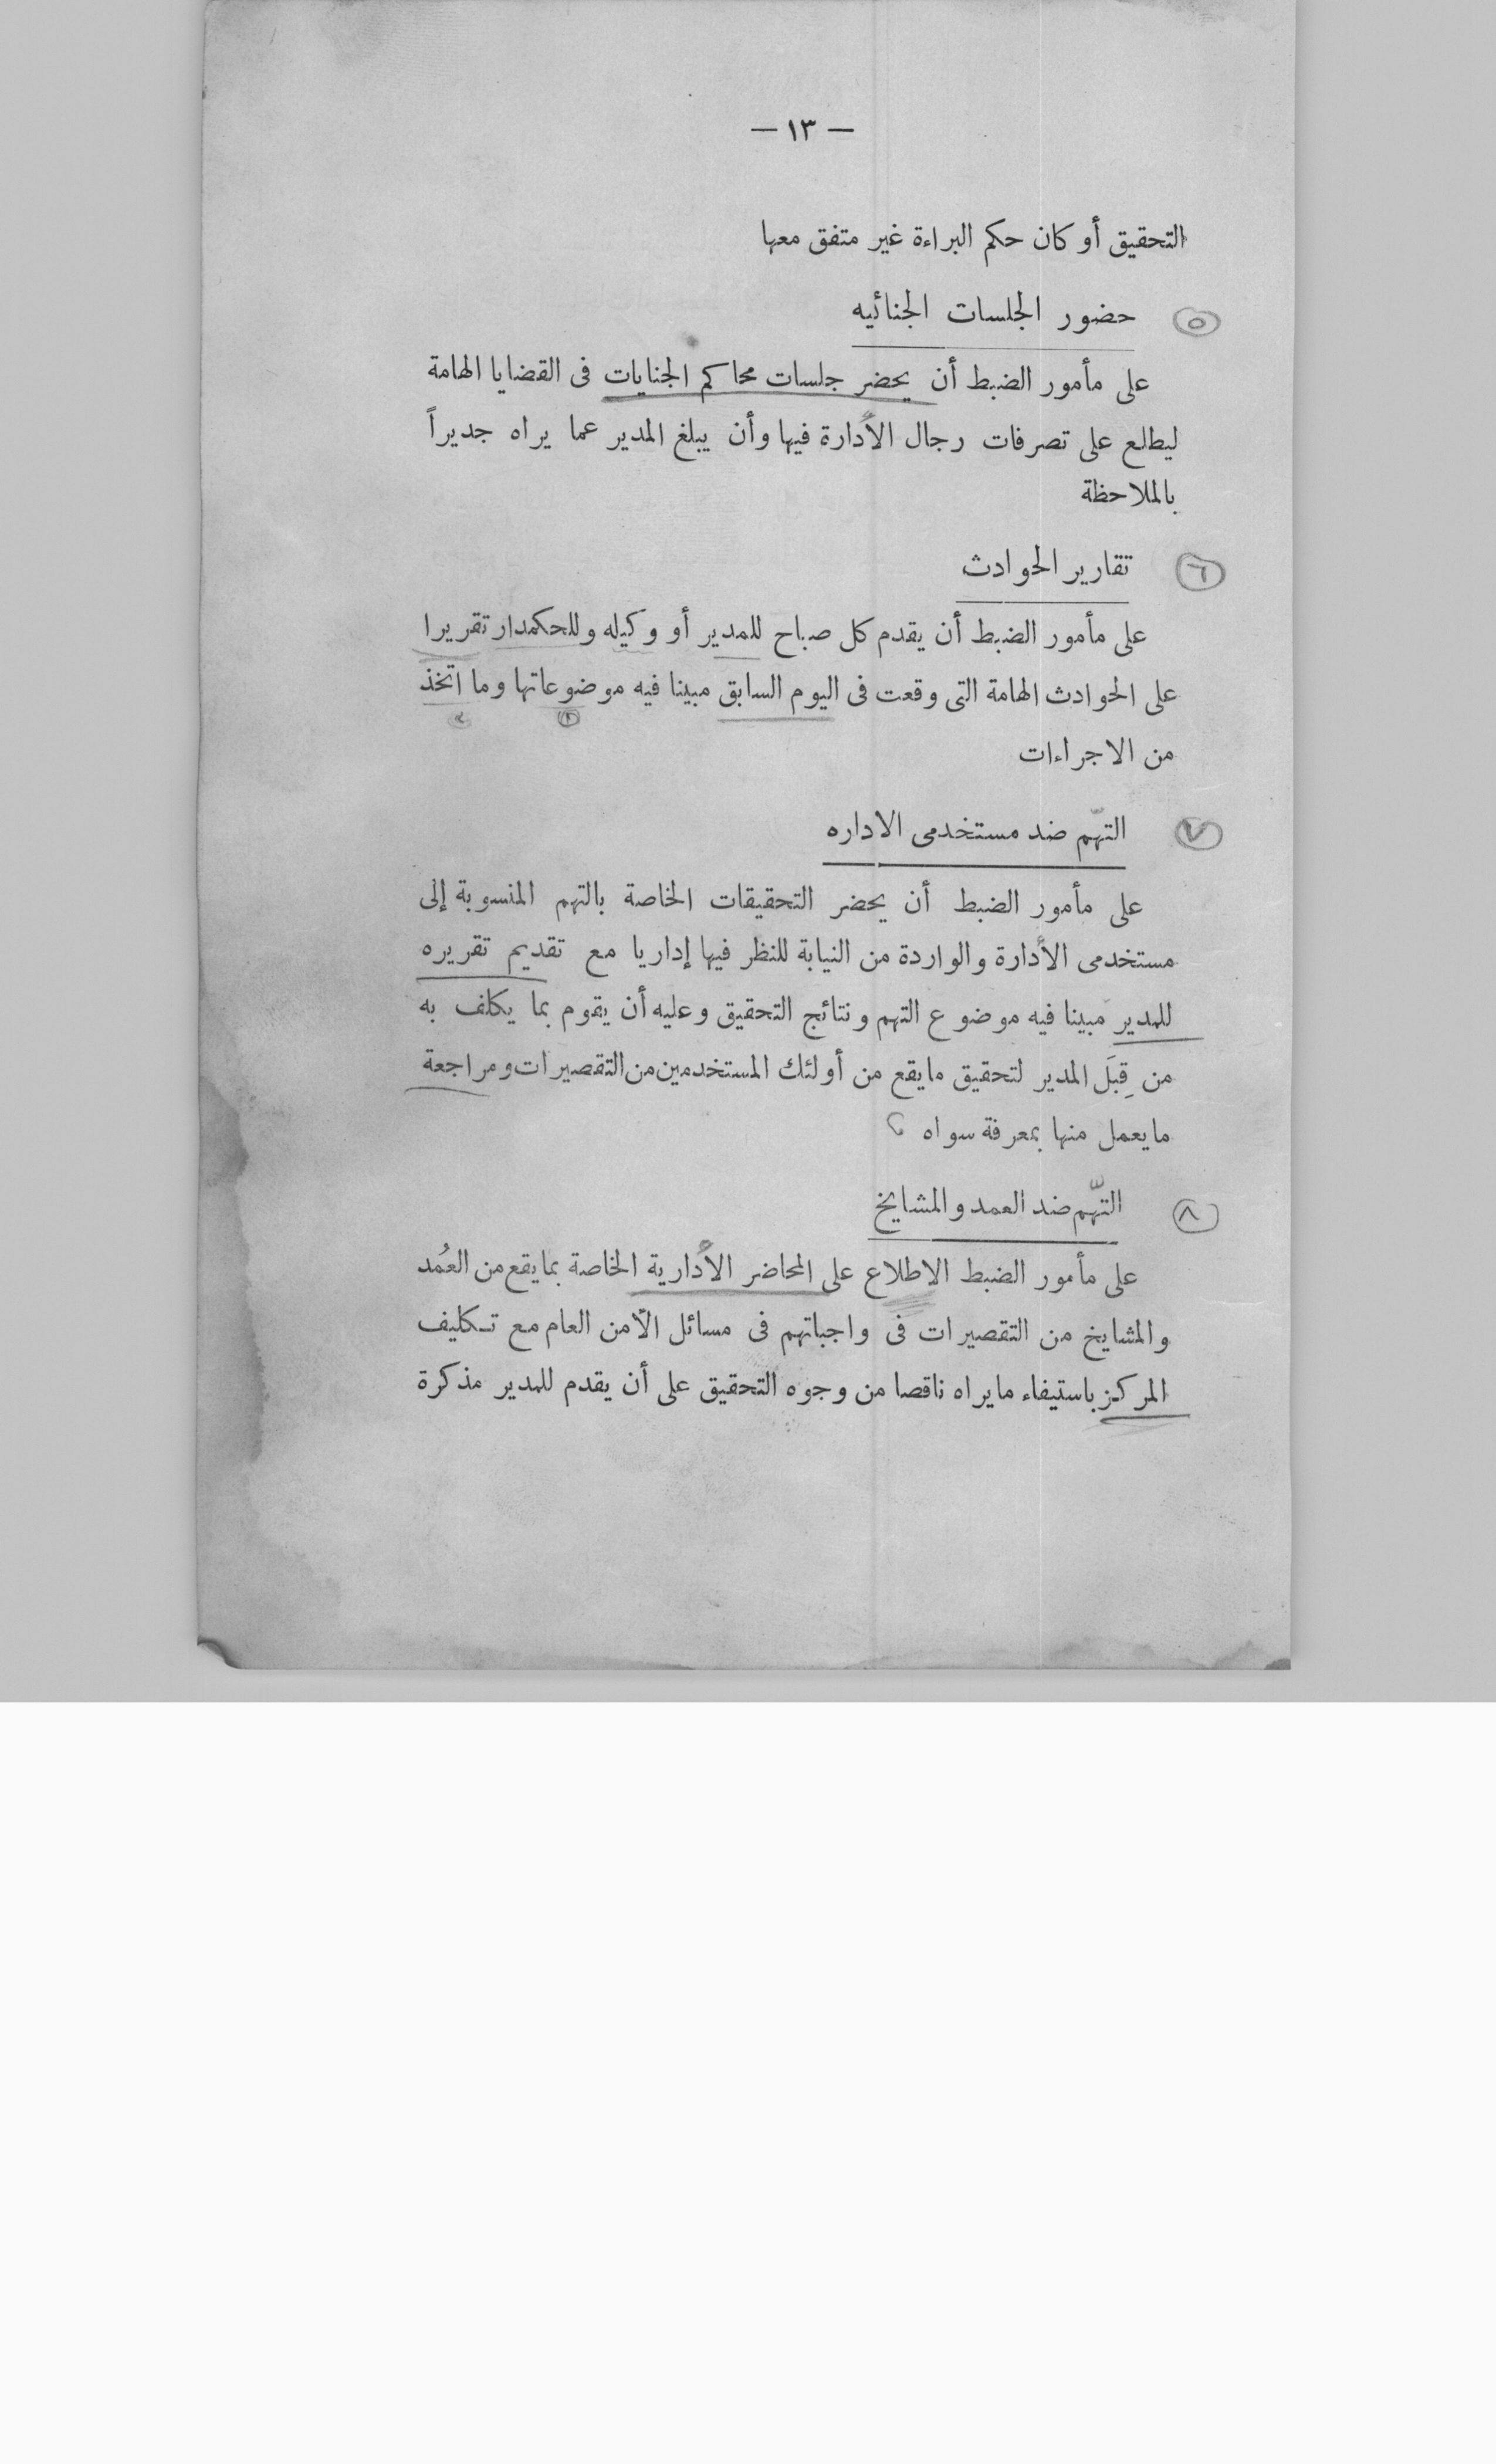 — ١٣ —
التحقيق أو كان حكم البراءة غير متفق معها
٥ حضور الجلسات الجنائيه
على مأمور الضبط أن يحضر جلسات محاكم الجنايات فى القضايا الهامة
ليطلع على تصرفات رجال الأدارة فيها وأن يبلغ المدير عما يراه جديراً
بالملاحظة
٦ تقارير الحوادث
على مأمور الضبط أن يقدم كل صباح للمدير أو وكيله وللحكمدار تقريرا
على الحوادث الهامة التى وقعت فى اليوم السابق مبينا فيه موضوعاتها وما اتخذ
من الاجراءات
٧ التهّم ضد مستخدمى الاداره
على مأمور الضبط أن يحضر التحقيقات الخاصة بالتهم المنسوبة إلى
مستخدمى الأدارة والواردة من النيابة للنظر فيها إداريا مع تقديم تقريره
للمدير مبينا فيه موضوع التهم ونتائج التحقيق وعليه أن يقوم بما يكلف به
من قِبَل المدير لتحقيق مايقع من أولئك المستخدمين من التقصيرات ومراجعة
مايعمل منها بمعرفة سواه
٨ التهّم ضد العمد والمشايخ
على مأمور الضبط الاطلاع على المحاضر الأدارية الخاصة بمايقع من العُمد
والمشايخ من التقصيرات فى واجباتهم فى مسائل الأمن العام مع تكليف
المركز باستيفاء مايراه ناقصا من وجوه التحقيق على أن يقدم للمدير مذكرة